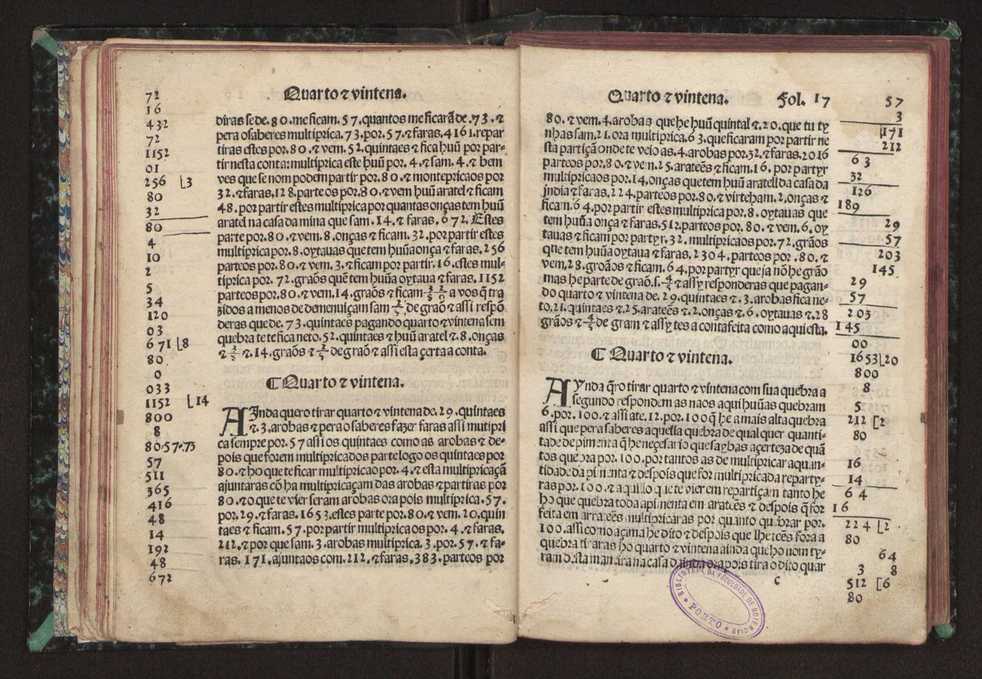 Quarto ⁊ vintena.
diras se de. 80. me ficam. 57. quantos me ficarã de. 73. ⁊
pera o saberes multiprica. 73. por. 57. ⁊ faras. 4161. repar
tiras estes por. 80. ⁊ vem. 52. quintaes ⁊ fica huũ por par-
tir nesta conta: multiprica este huũ por. 4. ⁊ sam. 4. ⁊ bem
ves que se nom podem partir por. 80. ⁊ montepricaos por
32. ⁊ faras. 128. parteos por. 80. ⁊ vem huũ aratel ⁊ ficam
48. por partir estes multiprica por quantas onças tem huũ
aratel na casa da mina que sam. 14. ⁊ faras. 672. Estes
parte por. 80. ⁊ vem. 8. onças ⁊ ficam. 32. por partir estes
multiprica por. 8. oytauas que tem huũa onça ⁊ faras. 256
parteos por. 80. ⁊ vem. 3. ⁊ ficam por partir. 16. estes mul-
tiprica por. 72. graõs quẽ tem huũa oytaua ⁊ faras. 1152
parteos por. 80. ⁊ vem. 14. graõs ⁊ ficam a vos q̃ tra
zidos a menos de demenuiçam sam de graõ ⁊ assi respõ
deras que de. 73. quintaes pagando quarto ⁊ vintena sem
quebra te fica neto. 52. quintaes ⁊ huũ aratel ⁊. 8. onças
⁊ ⁊. 14. graõs ⁊ de graõ ⁊ assi esta çerta a conta.
☾ Quarto ⁊ vintena.
AInda quero tirar quarto ⁊ vintena de. 29. quintaes
⁊. 3. arobas ⁊ pera o saberes fazer faras assi mutipri
ca sempre por. 57 assi os quintaes como as arobas ⁊ de-
pois que forem multipricados parte logo os quintaes por
80. ⁊ ho que te ficar multipricao por. 4. ⁊ esta multipricaçã
ajuntaras cõ ha multipricaçam das arobas ⁊ partiras por
80. ⁊ o que te vier seram arobas ora pois multiprica. 57.
por. 29. ⁊ faras. 1653. estes parte por. 80. ⁊ vem. 20. quin
taes ⁊ ficam. 57. por partir multiprica os por. 4. ⁊ faras.
212. ⁊ por que sam. 3. arobas multiprica. 3. por. 57. ⁊ fa-
ras. 171. ajuntaos com. 212. ⁊ faras. 383. parteos por
72
16
432
72
1152
01
256 ⌊3
80
32
80
4
10
2
5
34
120
03
671 ⌊8
80
0
033
1152 ⌊14
800
8
80·57·73
57
511
365
416
48
14
192
48
672
Quarto ⁊ vintena. Fol. 17
80. ⁊ vem. 4. arobas que he huũ quintal ⁊. 20. que tu ty
nhas sam. 21. ora multiprica. 63. que ficaram por partir ne
sta partiçã onde te veio as. 4. arobas por. 32. ⁊ faras. 2016
parteos por. 80. ⁊ vem. 25. arateẽs ⁊ ficam. 16. por partyr
multipricaos por. 14. onças que tem huũ aratell da casa da
india ⁊ faras. 224. parteos por. 80. ⁊ virteham. 2. onças ⁊
ficam. 64. por partir estes multiprica por. 8. oytauas que
tem huũa onça ⁊ faras. 512. parteos por. 80. ⁊ vem. 6. oy
tauas ⁊ ficam por partyr. 32. multipricaos por. 72. grãos
que tem huũa oytaua ⁊ faras. 2304. parteos por. 80. ⁊
vem. 28. graõs ⁊ ficam. 64. por partyr que ja nõ he grão
mas he parte de graõ. s. ⁊ assy responderas que pagan-
do quarto ⁊ vintena de. 29. quintaes ⁊. 3. arobas fica ne-
to. 21. quintaes ⁊ 25. arateẽs ⁊. 2. onças ⁊. 6. oytauas ⁊. 28
grãos ⁊ de gram ⁊ assy tes a conta feita como aqui esta.
☾ Quarto ⁊ vintena.
AYnda q̃ro tirar quarto ⁊ vintena com sua quebra a
segundo respondem as naos aqui huũas quebram
6. por. 100. ⁊ assi ate. 12. por. 100 q̃ he a mais alta quebra
assi que pera saberes aquella quebra de qual quer quanti-
tade de pimenta q̃ he neçesario que saybas açerteza de quã
tos quebra por. 100. por tantos as de multipricar aquan-
tidade da pimenta ⁊ despois que for multipricada reparty-
ras por. 100. ⁊ aquillo que te vier em repartiçam tanto he
ho que quebra toda apimenta em arateẽs ⁊ despois q̃ for
feita em arrateẽs multipricaras por quanto quebrar por.
100. assi como açima he dito ⁊ despois que lhe teẽs fora a
quebra tiraras ho quarto ⁊ vintena ainda que ho nom ty-
ram desta maneira na casa da india ora pois tira o dito quar
c
57
3
171
212
63
32
126
189
29
57
203
145
29
57
203
145
00
1653 ⌊20
800
8
5
212 ⌊2
80
16
14
64
16
224 ⌊2
80
64
3 8
512 ⌊6
80
BIBLIOTECA DA FACULDADE DE SCIENCIAS
PORTO